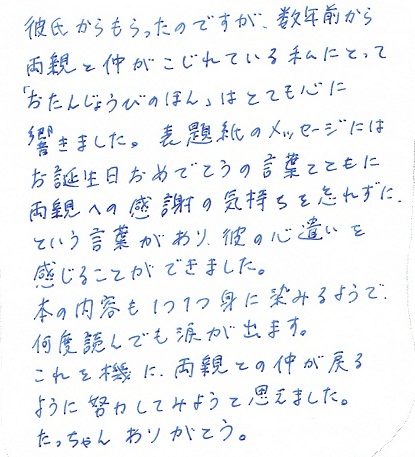 彼氏からもらったのですが、数年前から
両親と仲がこじれている私にとって
「おたんじょうびのほん」はとても心に
響きました。表題紙のメッセージには
お誕生日おめでとうの言葉とともに
両親への感謝の気持ちを忘れずに、
という言葉があり、彼の心遣いを
感じることができました。
本の内容も1つ1つ身に染みるようで、
何度読んでも涙が出ます。
これを機に、両親との仲が戻る
ように努力してみようと思えました。
たっちゃん ありがとう。